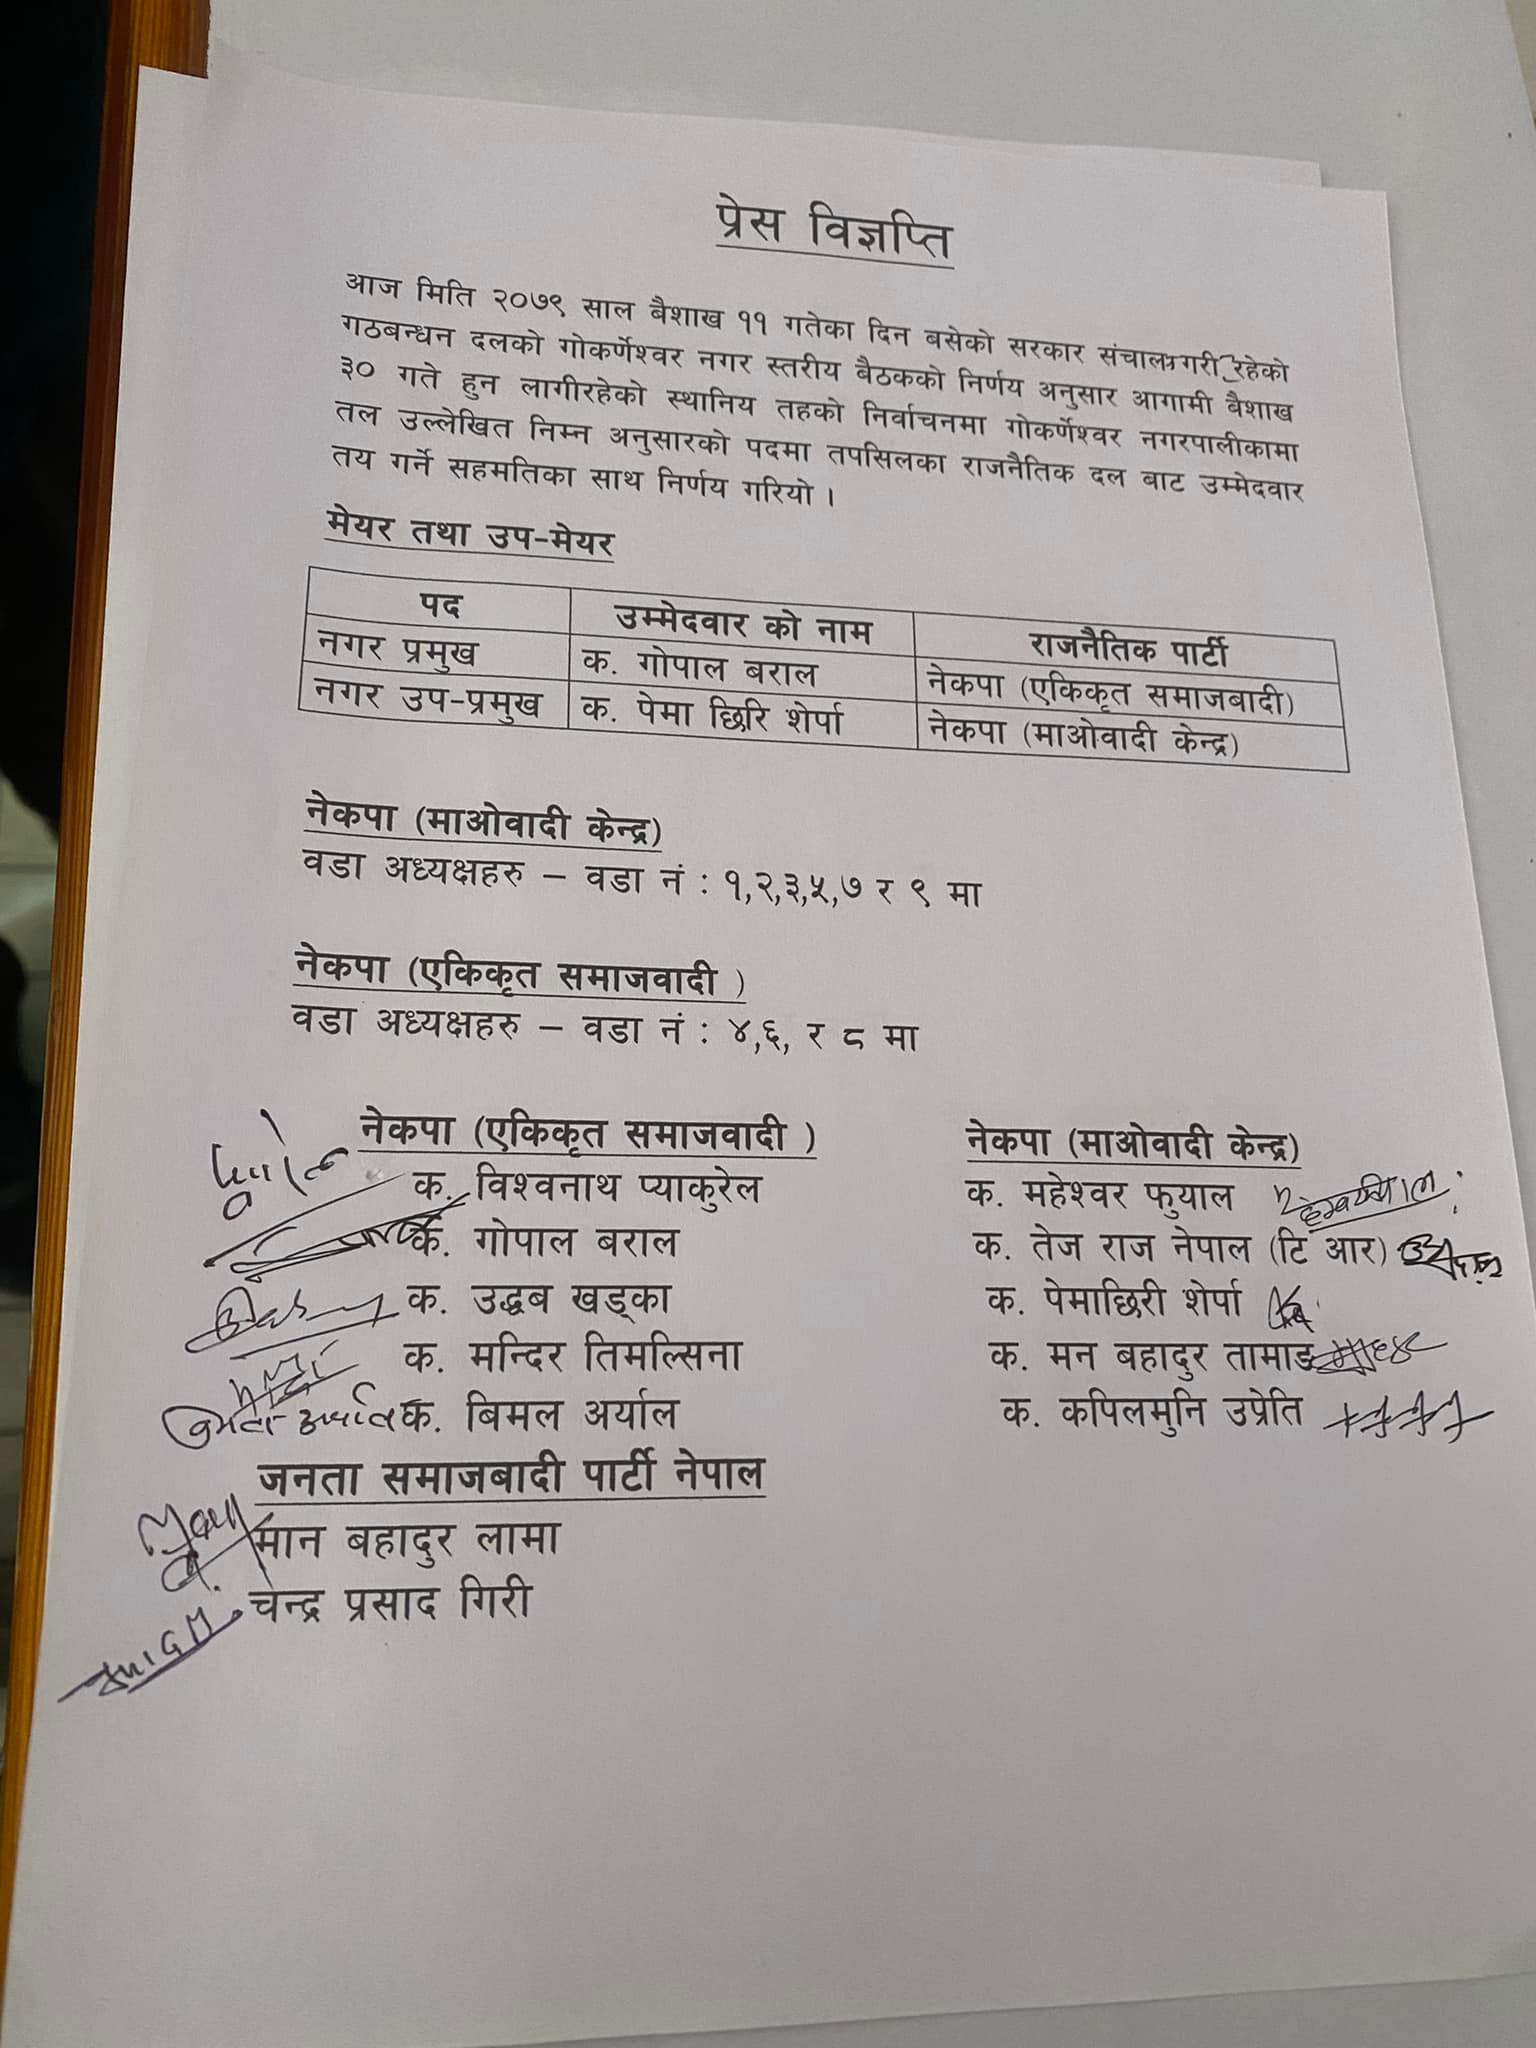 प्रेस विज्ञप्ति
आज मिति २०७९ साल बैशाख ११ गतेका दिन बसेको सरकार संचालन गरी रहेको
गठबन्धन दलको गोकर्णेश्वर नगर स्तरीय बैठकको निर्णय अनुसार आगामी बैशाख
३० गते हुन लागीरहेको स्थानिय तहको निर्वाचनमा गोकर्णेश्वर नगरपालीकामा
तल उल्लेखित निम्न अनुसारको पदमा तपसिलका राजनैतिक दल बाट उम्मेदवार
तय गर्ने सहमतिका साथ निर्णय गरियो ।
मेयर तथा उप-मेयर
पद उम्मेदवार को नाम राजनैतिक पार्टी
नगर प्रमुख क. गोपाल बराल नेकपा (एकिकृत समाजबादी)
नगर उप-प्रमुख क. पेमा छिरि शेर्पा नेकपा (माओवादी केन्द्र)
नेकपा (माओवादी केन्द्र)
वडा अध्यक्षहरु – वडा नं : १,२,३,५,७ र ९ मा
नेकपा (एकिकृत समाजवादी )
वडा अध्यक्षहरु – वडा नं : ४,६, र ८ मा
नेकपा (एकिकृत समाजवादी )
क. विश्वनाथ प्याकुरेल
क. गोपाल बराल
क. उद्धब खड्का
क. मन्दिर तिमल्सिना
क. बिमल अर्याल
नेकपा (माओवादी केन्द्र)
क. महेश्वर फुयाल
क. तेज राज नेपाल (टि आर)
क. पेमाछिरी शेर्पा
क. मन बहादुर तामाङ
क. कपिलमुनि उप्रेति
जनता समाजबादी पार्टी नेपाल
मान बहादुर लामा
चन्द्र प्रसाद गिरी